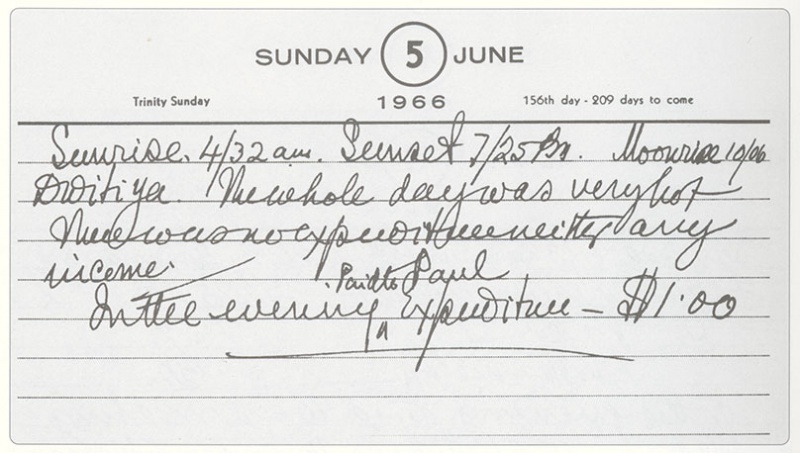 SUNDAY 5 JUNE
Trinity Sunday 1966 156th day - 209 days to come
Sunrise. 4/32 am. Sunset 7/25 Pm. Moonrise 10/06
Dwitiya. The whole day was very hot
There was no expenditure neither any
income.
Paid to Paul
In the evening ^ Expenditure – $1.00